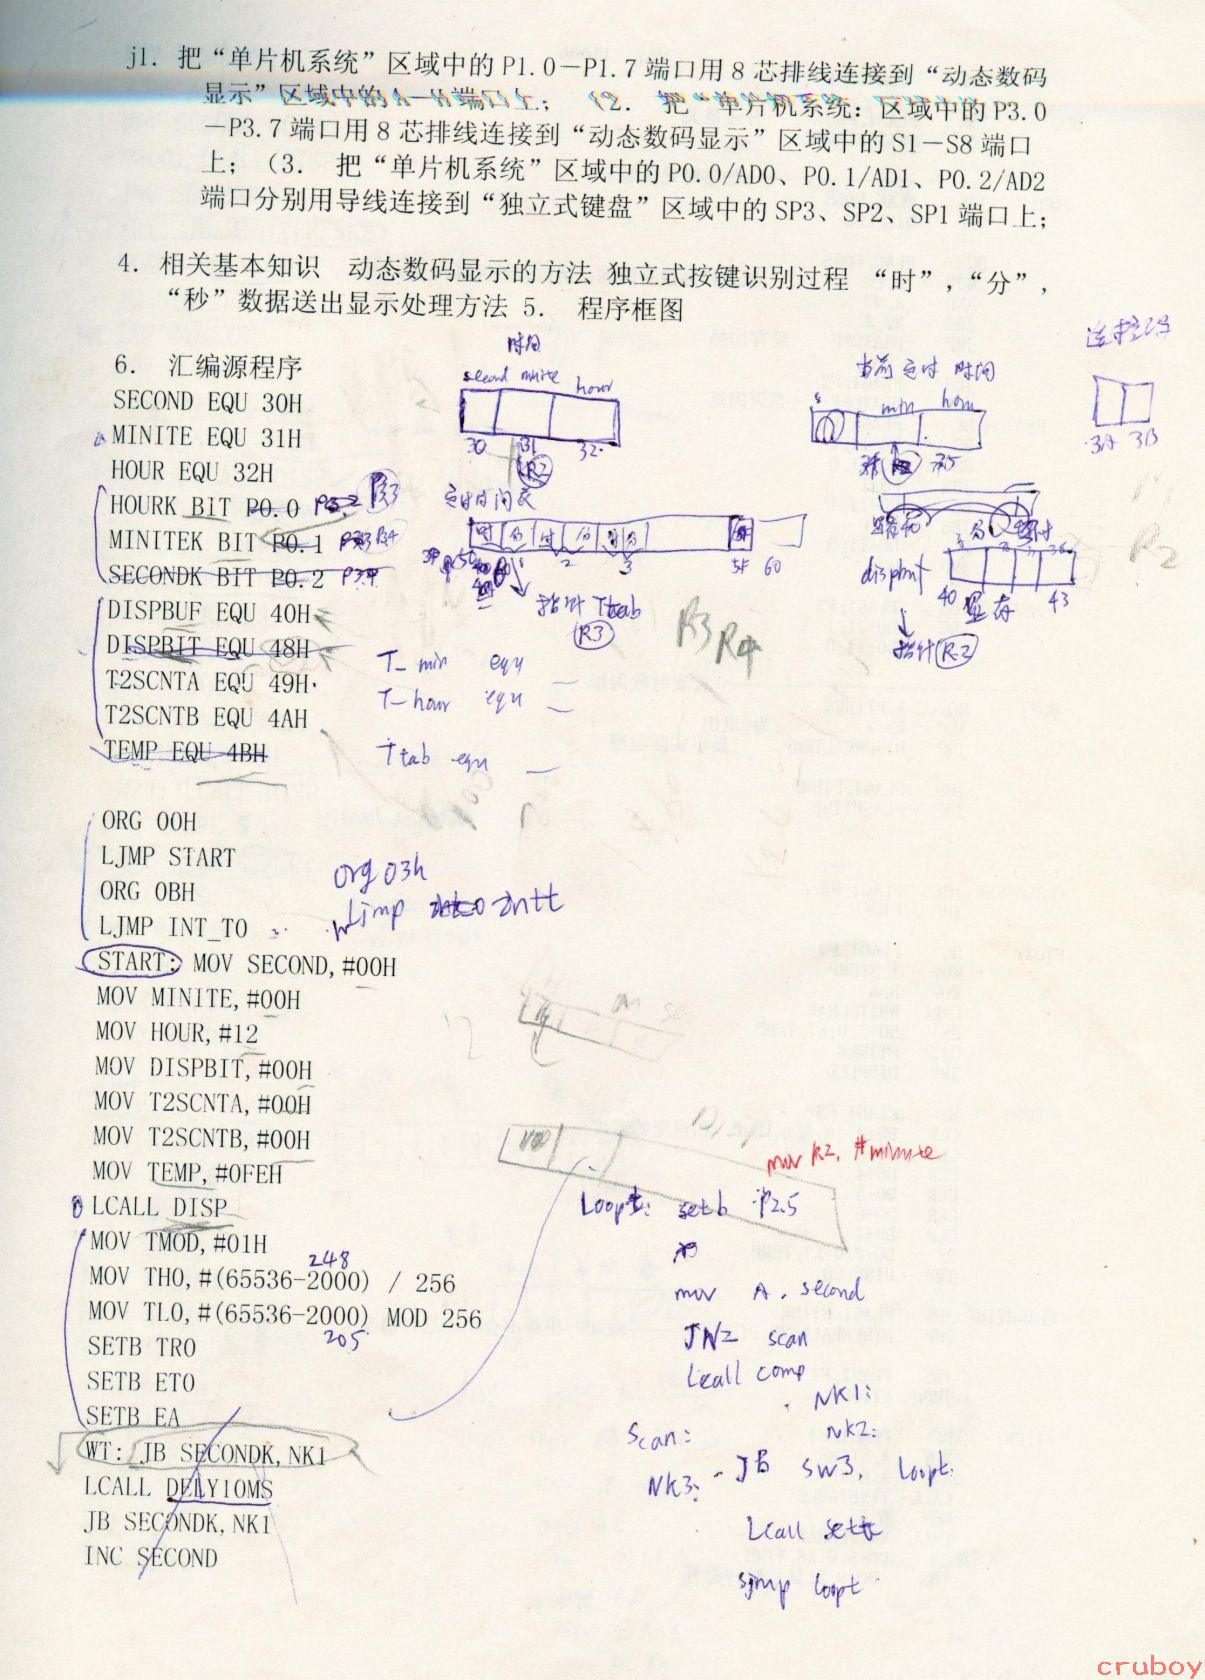 j1. 把“单片机系统”区域中的P1.0－P1.7端口用8芯排线连接到“动态数码
显示”区域中的A－H端口上； (2. 把“单片机系统：区域中的P3.0
－P3.7端口用8芯排线连接到“动态数码显示”区域中的S1－S8端口
上； (3. 把“单片机系统”区域中的P0.0/AD0、P0.1/AD1、P0.2/AD2
端口分别用导线连接到“独立式键盘”区域中的SP3、SP2、SP1端口上；
4. 相关基本知识 动态数码显示的方法 独立式按键识别过程 “时”，“分”，
“秒”数据送出显示处理方法 5. 程序框图
6. 汇编源程序
时间
second minite hour
30 31 32
R2
当前定时时间
s min hour
35
3A 3B
SECOND EQU 30H
MINITE EQU 31H
HOUR EQU 32H
HOURK BIT P0.0
MINITEK BIT P0.1
SECONDK BIT P0.2 P3.4
定时时间表
时 分 时 分 时 分
2 3 5F 60
指针 Ttab
R3
R3 R4
R2
40 显存 43
指针 R2
DISPBUF EQU 40H
DISPBIT EQU 48H
T2SCNTA EQU 49H
T2SCNTB EQU 4AH
TEMP EQU 4BH
T_min equ
T_hour equ
Ttab equ
ORG 00H
LJMP START
ORG 0BH
LJMP INT_T0
org 03h
Ljmp intt
START: MOV SECOND,#00H
MOV MINITE,#00H
MOV HOUR,#12
MOV DISPBIT,#00H
MOV T2SCNTA,#00H
MOV T2SCNTB,#00H
MOV TEMP,#0FEH
LCALL DISP
MOV TMOD,#01H
248
MOV TH0,#(65536-2000) / 256
MOV TL0,#(65536-2000) MOD 256
205
SETB TR0
SETB ET0
SETB EA
WT: JB SECONDK,NK1
LCALL DELY10MS
JB SECONDK,NK1
INC SECOND
mov R2, #minute
Loopt: setb P2.5
mov A, second
JNZ scan
Lcall comp
NK1:
Scan: NK2:
NK3: JB SW3, Loopt
Lcall sett
sjmp loopt
cruboy